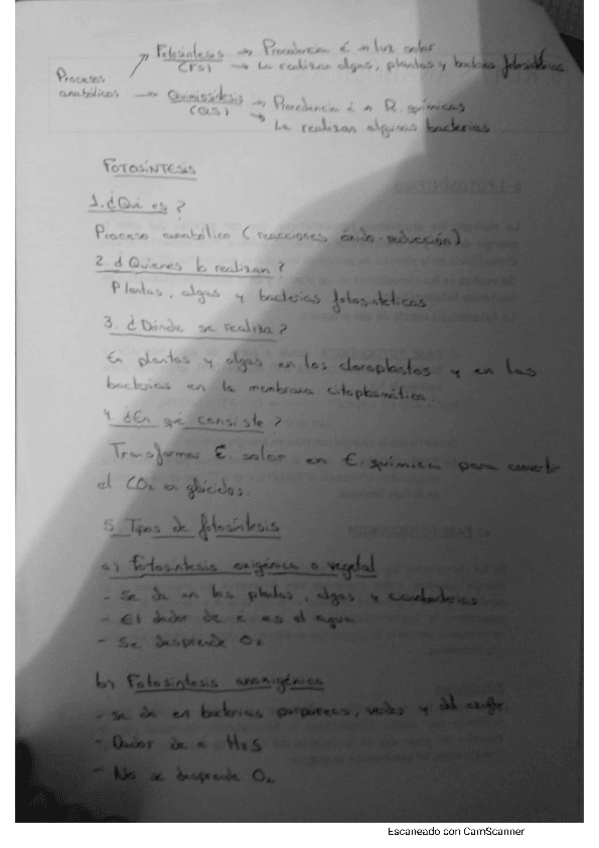 Procesos anabólicos
Fotosíntesis (FS) → Procedencia é → luz solar
→ La realizan algas, plantas y bacterias fotosintéticas.
Quimiosíntesis (QS) → Procedencia é → R. químicas
→ La realizan algunas bacterias
FOTOSÍNTESIS
1. ¿Qué es?
Proceso anabólico (reacciones óxido-reducción)
2. ¿Quienes lo realizan?
Plantas, algas y bacterias fotosintéticas
3. ¿Dónde se realiza?
En plantas y algas en los cloroplastos y en las
bacterias en la membrana citoplasmática.
4. ¿En qué consiste?
Transformar E. solar en E. química para convertir
el CO2 en glúcidos.
5. Tipos de fotosíntesis
a) Fotosíntesis oxigénica o vegetal
- Se da en las plantas, algas y cianobacterias
- El dador de é es el agua
- Se desprende O2
b) Fotosíntesis anoxigénica
- Se da en bacterias purpúreas, verdes y del azufre
- Dador de é H2S
- No se desprende O2
Escaneado con CamScanner